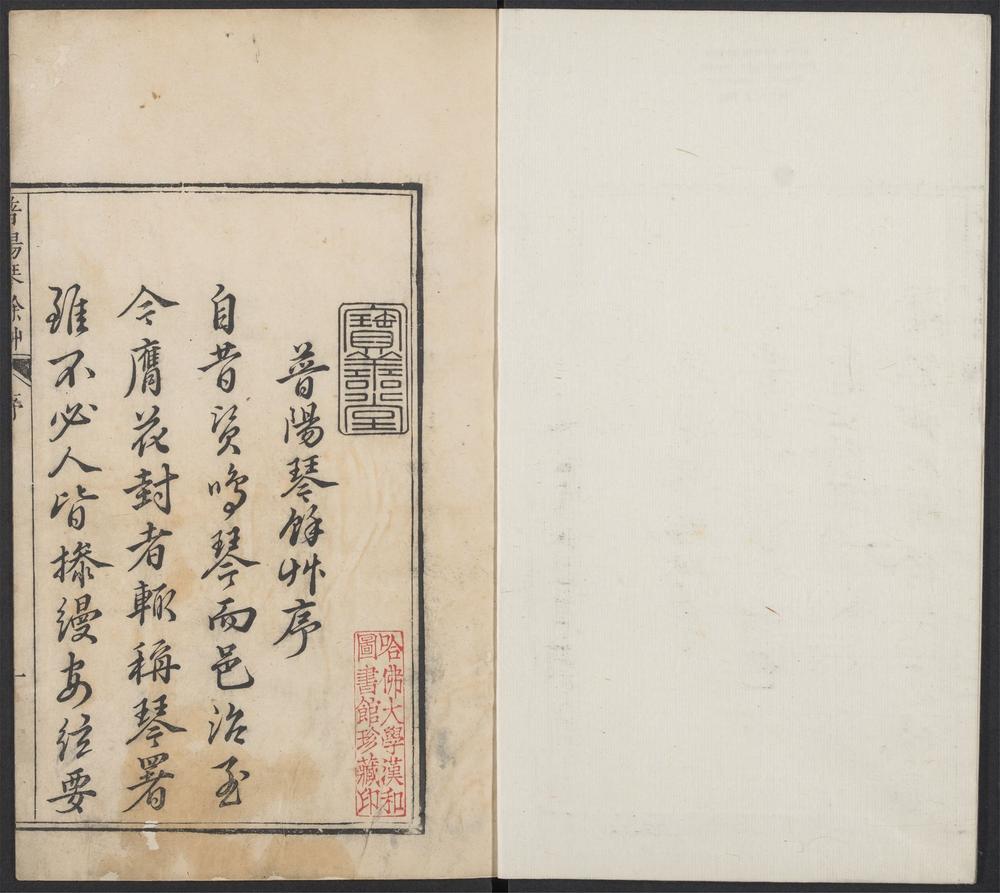 寶善堂
普陽琴餘艸序
自昔賢鳴琴而邑治至
今膺花封者輒稱琴署
雖不必人皆操縵安絃要
哈佛大學漢和
圖書館珍藏印
普陽琴餘艸
序
一